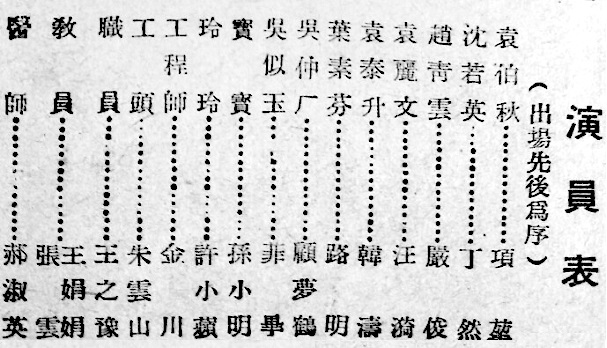 演員表
（出場先後爲序）
袁伯秋………項堃
沈若英………丁然
趙青雲………嚴俊
袁麗文………汪漪
袁泰升………韓濤
葉素芬………路明
吳仲厂………顧夢鶴
吳似玉………菲畢
寳寳………孫小明
玲玲………許小蘋
工程師………金川
工頭………朱雲山
職員………王之豫
教員………王娟娟 張雲
醫師………郝淑英